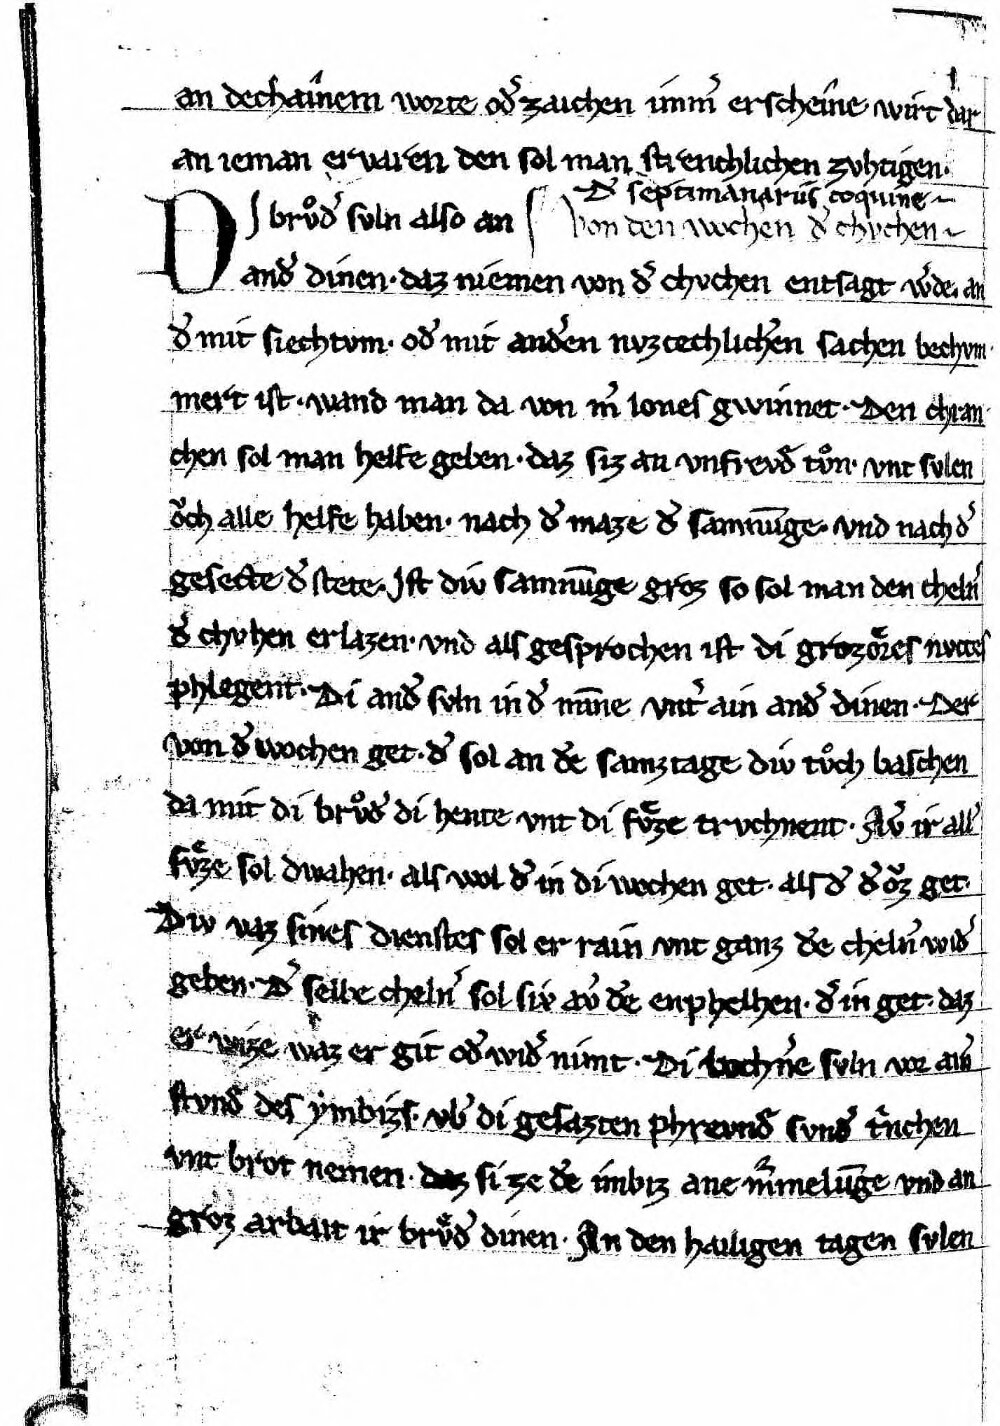 an dechaînem worte od̾ zaichen imm̾ erscheîne wirt dar
an ieman ervaren den sol man strenchlichen zvhtigen.
D̾ septimanarijs coquine
DJ brůd̾ svln also an
von den wochen d̾ chvchen
and̾ dinen. daz niemen von d̾ chvchen entsagt w̾de. an
d̾ mit siechtvm. od̾ mit and̾en nvzcechlich̾en sachen bechvm
mert ist. wand man da von m̾ lones gwinnet. Den chran
chen sol man helfe geben. daz siz an vnfrevd̾ tůn. vnt svlen
ǒch alle helfe haben. nach d̾ maze d̾ samnu̅ge. vnd nach d̾
gesecte d̾ stete. Jst div samnu̅ge groz so sol man den cheln̾
d̾ chvhen erlazen. vnd als gesprochen ist di grozores nvtces
phlegent. Di and̾ svln in d̾ mi̅ne vnt̾ ain and̾ dinen. Der
von d̾ wochen get. d̾ sol an d̾e samztage div tůch baschen
da mit di brůd̾ di hente vnt di fvͤze trvchnent. Av̾ ir all̾
fvͤze sol dwahen. als wol d̾ in di wochen get. als d̾ d̾ ǒz get.
Div vaz sines dienstes sol er rain vnt ganz d̾e cheln̾ wid̾
geben. D̾ selbe cheln̾ sol siv av̾ d̾e enphelhen. d̾ in get. daz
er wize waz er git od̾ wid̾ nimt. Di wochn̾e svln vor ain̾
stvnd̾ des ymbizs. vb̾ di gesazten phrevnd̾ svnd̾ tri̾nchen
vnt brot nemen. daz si ze d̾e imbiz ane mv̾rmelu̅ge vnd an
groz arbait ir brvͤd̾ dinen. An den hailigen tagen svlen